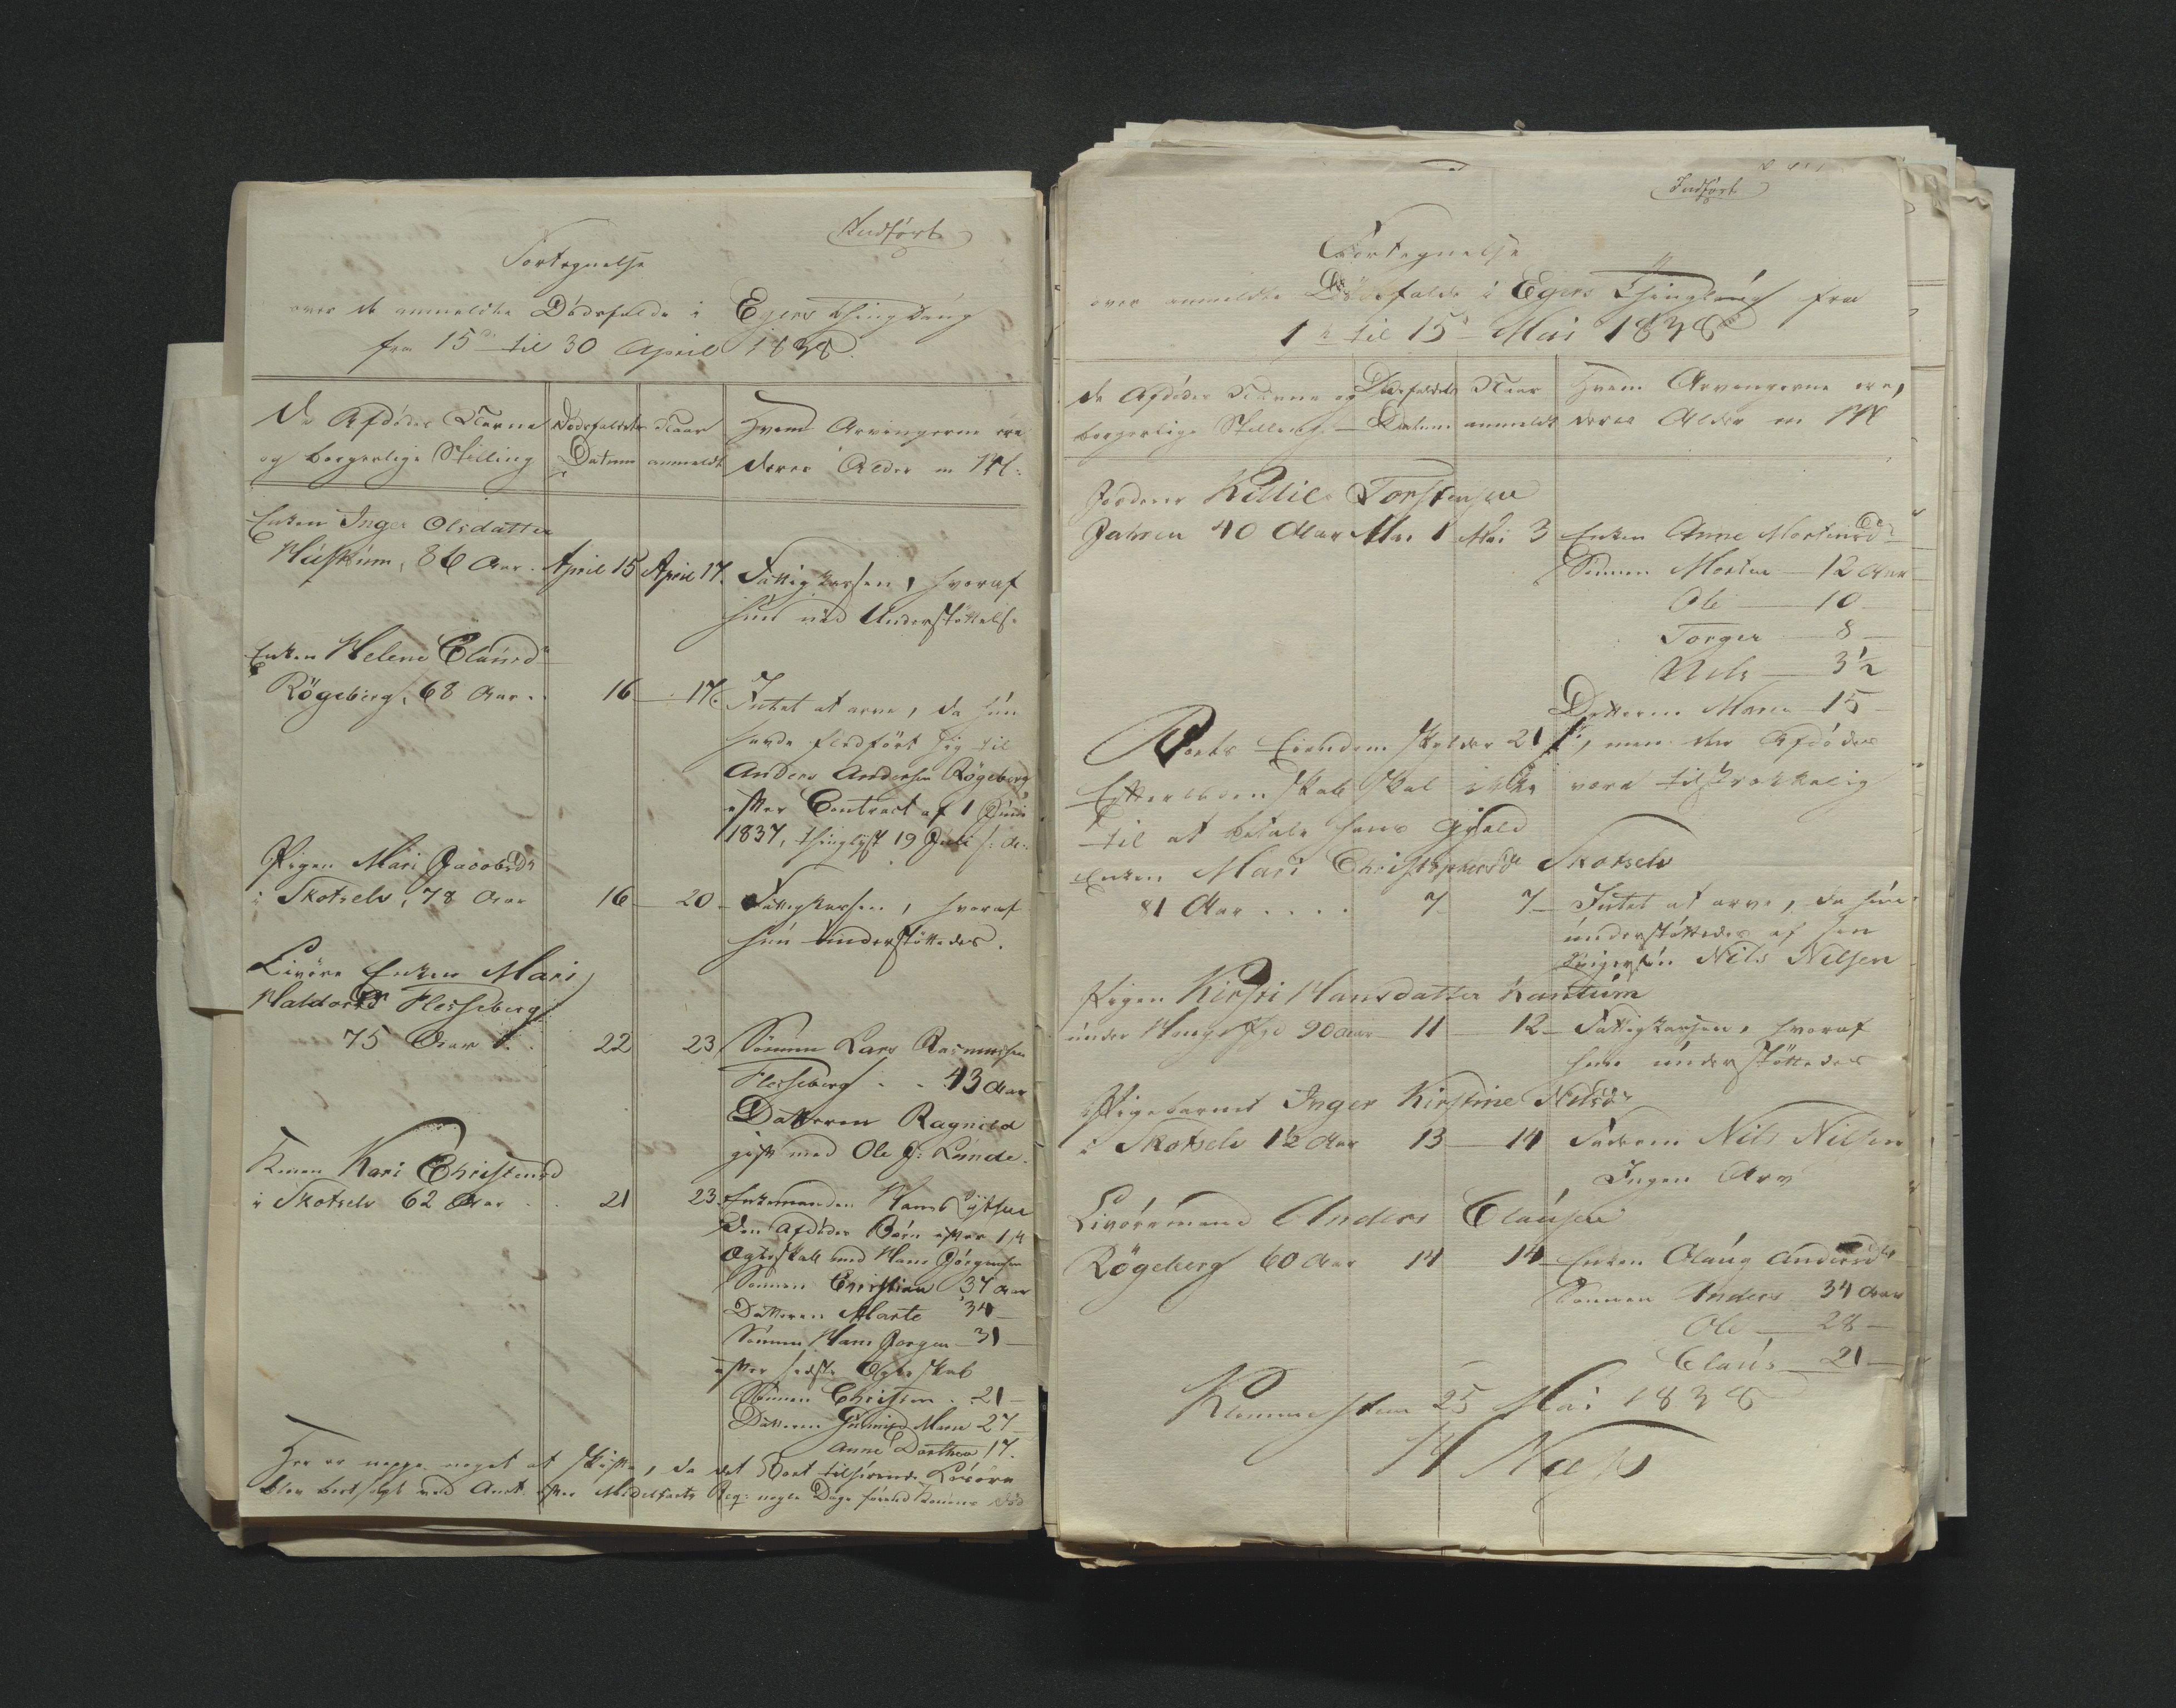 Indført
Fortegnelse
over de anmeldte Dödsfalde i Egers Thinglaug
fra 15de til 30 April 1838.
De Afdödes Navne
og borgerlige Stilling
Dödsfaldets
Datum
Naar
anmeldt
Hvem Arvingerne ere
deres Alder m M:
Enken Inger Olsdatter
Huskum, 86 Aar. April 15 April 17. Fattigkassen, hvoraf
hun nöd Understöttelse
Enken Helene Clausdr
Rögeberg, 68 Aar.. 16 — 17. Intet at arve, da hun
havde fledfört sig til
Anders Andersen Rögeberg
efter Contract af 1 Juni
1837, thinglyst 19 Juli s: A:
Pigen Mari Jacobsdr
i Skotselv, 78 Aar 16 — 20 — Fattigkassen, hvoraf
hun understöttedes.
Livöre Enken Mari
Haldorsdr Flesseberg
75 Aar . . 22 23 Sönnen Lars Rasmussen
Flesseberg . . 43 Aar
Datteren Ragnild
gift med Ole J: Lunde.
Konen Kari Christensd
i Skotselv 62 Aar . . 21 23. Enkemanden Hans
Den Afdödes Börn efter 1ste
Ægteskab med Hans Jörgensen
Sönnen Christian 37 Aar
Datteren Marte 34 —
Sönnen Hans Jorgen — 31 —
efter sidste Ægteskab
Sönnen Christen . . 21 —
Datteren Gunnild Marie 27 —
Anne Dorthea 17.
Her er neppe noget at skifte, da det Boet tilhörende Lösöre
blev bortsolgt ved Auct. efter Req: nogle Dage förend Konens Död
Indført
Fortegnelse
over anmeldte Dödsfalde i Egers Thinglaug fra
1te til 15de Mai 1838
De Afdödes Navne og
borgerlige Stilling
Dödsfaldets
Datum
Naar
anmeldt
Hvem Arvingerne ere,
deres Alder m M
Kittil Torstensen
40 Aar Mai 1 Mai 3 Enken Anne Mortensdr
Sönnen Morten — 12 Aar
Ole — 10 —
Torger — 8 —
Nils — 3½
Datteren Maria — 15 —
Boets Eiendom skylder 21 , men den Afdödes
Efterladenskab skal ikke være tilstrækkelig
til at betale hans Gjæld
Enken Mari Christophersdr Skotselv
81 Aar . . . . 7 7 — Intet at arve, da hun
understöttedes af sin
Svigersön Nils Nilsen
Pigen Kirsti Hansdatter
under 90 Aar — 11 — 12 — Fattigkassen, hvoraf
hun understöttedes
Pigebarnet Inger Kirstine Nilsdr
i Skotselv 1½ Aar 13 — 14 Faderen Nils Nilsen
Ingen Arv
Livöremand Anders Clausen
Rögeberg 60 Aar 14 14 — Enken Olaug Andersdr
Sönnen Anders 34 Aar
Ole — 28 —
Claus — 21 —
25 Mai 1838
H Næss